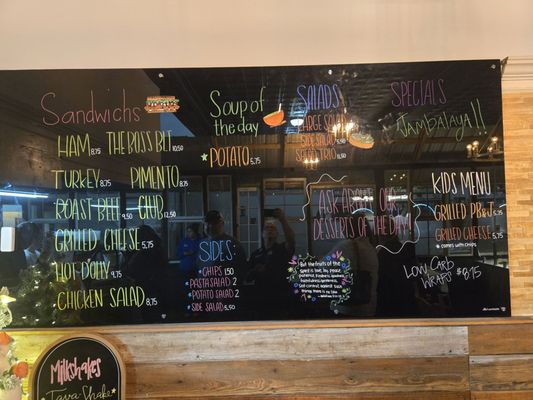 Sandwichs
HAM 8.75
THE BOSS BLT 10.50
TURKEY 8.75
PIMENTO 8.75
ROAST BEEF 9.50
CLUB 10.50
GRILLED CHEESE 5.75
HOT DOG
CHICKEN SALAD 8.75
Soup of
the day
POTATO 5.75
SIDES:
CHIPS 1.50
PASTA SALAD 2
POTATO SALAD 2
SIDE SALAD 5.50
SALADS
LARGE SALAD
SIDE SALAD
SALAD TRIO
ASK ABOUT OUR
DESSERTS OF THE DAY
but the fruit of
the spirit is love, joy, peace,
SPECIALS
Jambalaya!!
KIDS MENU
GRILLED PB&J 5.75
GRILLED CHEESE 5.75
COMES WITH CHIPS
LOW CARB
WRAPS $8.75
Milkshakes
Java Shake